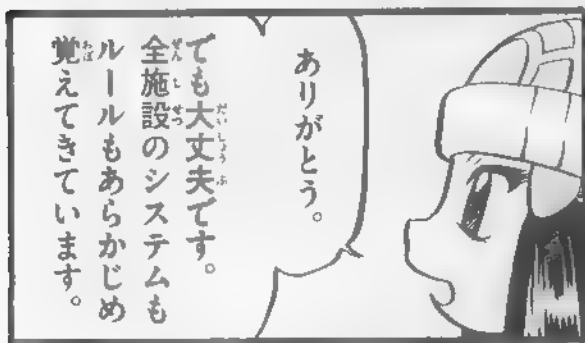 ありがとう。
でも大丈夫です。
全施設のシステムも
ルールもあらかじめ
覚えてきています。